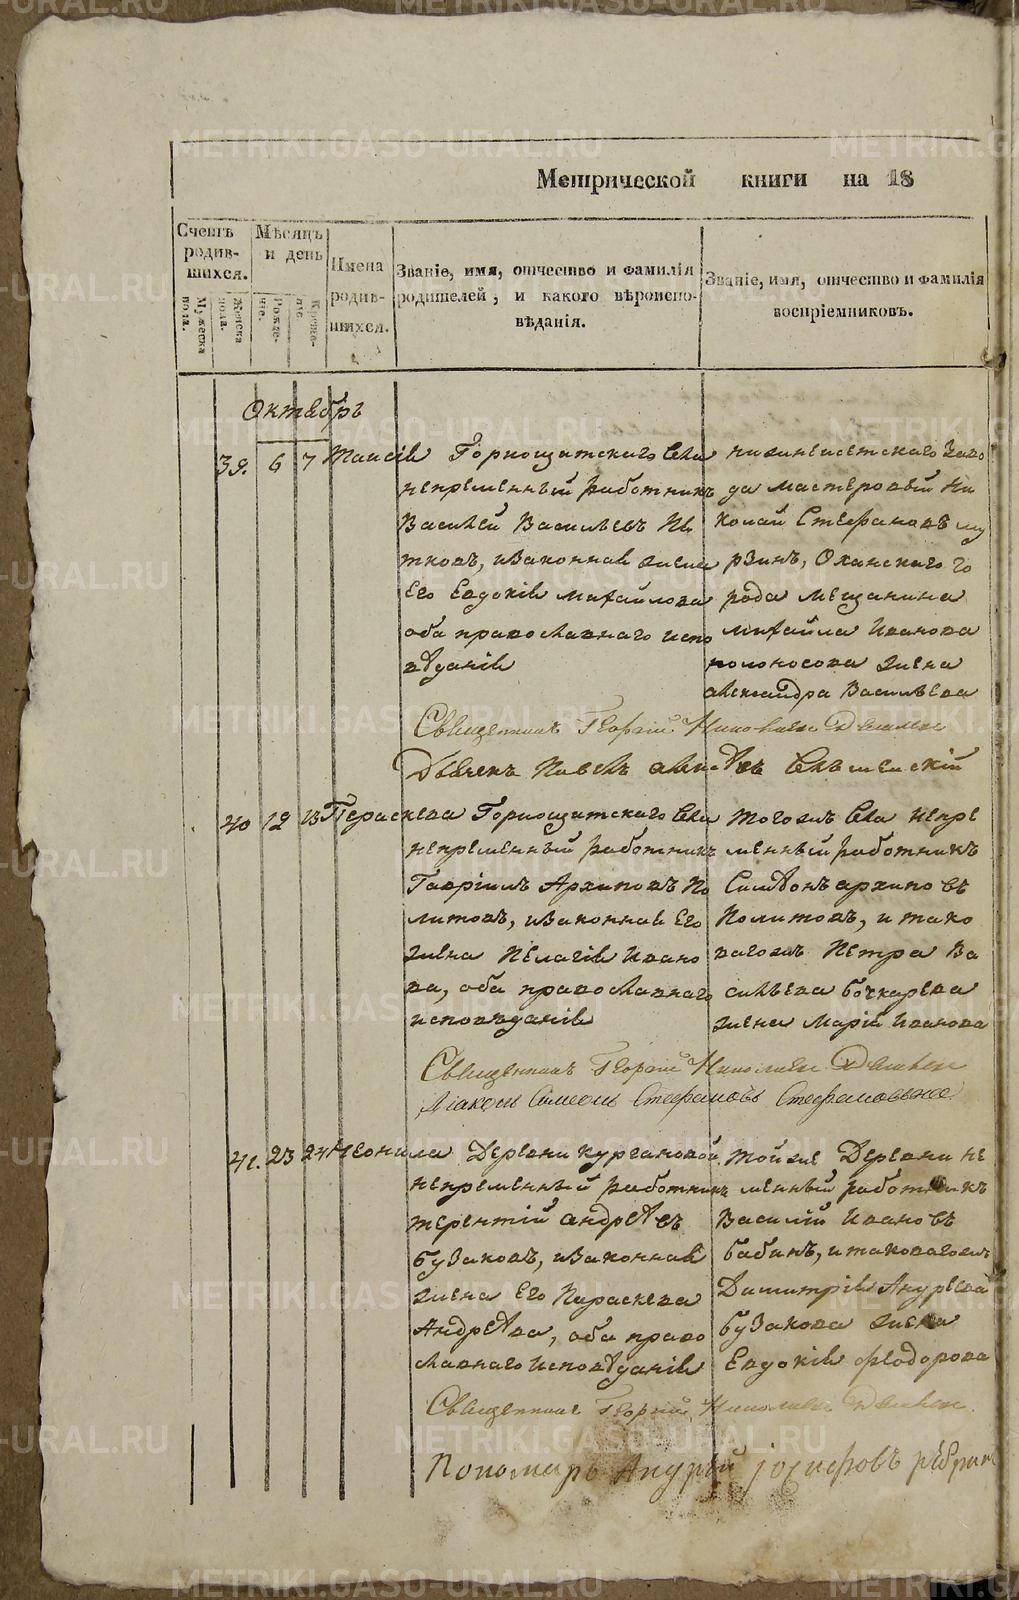 Метрической книги на 18
Счетъ родив-шихся.
Мужеска пола.
Женска пола.
Мѣсяцъ и день
Рожде-ніе.
Креще-ніе
Имена родив-шихся.
Званіе, имя, отчество и фамилія
родителей, и какого вѣроиспо-
вѣданія.
Званіе, имя, отчество и фамилія
воспріемниковъ.
Октябрь
39. 6 7 Таисія
Горнощитскаго села
непременный работникъ
Василей Васильевъ Пѣ
тковъ, изаконная жена
Его Евдокія Михайлова
оба православнаго испо
вѣданія
нижнеисетскаго заво
да мастеровый Ни
колай Стефановъ му
рзинъ, Оханскаго го
рода мещанина
михайла Иванова
полоносова жена
александра Васильева
Священникъ Георгій Николаевъ
Дьячекъ Павелъ
40 12 13 Параскева
Горнощитскаго села
непременный работникъ
Гавріилъ Архиповъ По
литовъ, изаконная Его
жена Пелагія Ивано
ва, оба православнаго
исповѣданія
тогожъ села непре
менный работникъ
Симеонъ архиповъ
Политовъ, и тако
вагожъ Петра Ва
сильева бочкарева
жена Марія Иванова
Священникъ Георгій Николаевъ
Діаконъ Симеонъ Стефановъ
41. 23 24 Неонила
Деревни кургановой
непременный работникъ
терентій андреевъ
бузаковъ, изаконная
жена Его Параскева
Андреева, оба право
славнаго исповѣданія
тойже Деревни не
менный работникъ
Василій Ивановъ
бабинъ, итаковагожъ
Димитрія Андреева
бузакова жена
Евдокія феодорова
Священникъ Георгій Николаевъ
Пономарь Андрей іосифовъ
METRIKI.GASO-URAL.RU